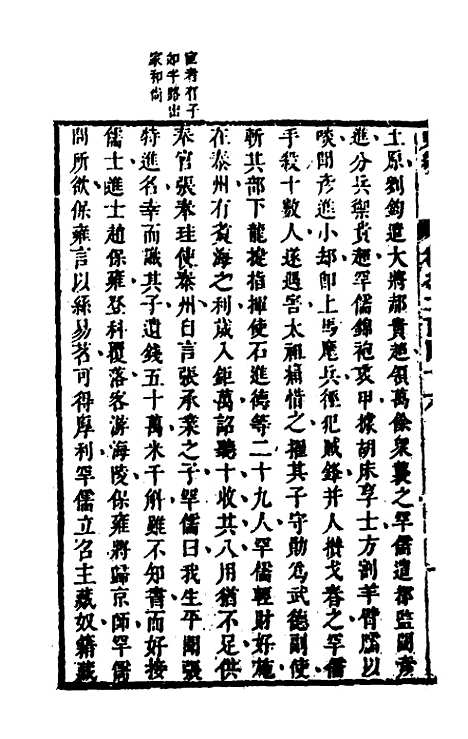 宦者有子
如半路出
家和尚
土原劉鈞遣大將郝貴超領萬餘衆襲之罕儒遣都監閻彥
進分兵禦貴超罕儒錦袍衷甲據胡床享士方割羊臂臑以
啖聞彥進小却卽上馬麾兵徑犯賊鋒幷人攢戈舂之罕儒
手殺十數人遂遇害太祖痛惜之擢其子守勛爲武德副使
斬其部下龍捷指揮使石進德等二十九人罕儒輕財好施
在泰州有煑海之利歲入鉅萬詔聽十收其八用猶不足供
奉官張奉珪使泰州自言張承業之子罕儒曰我生平聞張
特進名幸而識其子遺錢五十萬米千斛雖不知書而好接
儒士進士趙保雍登科覆落客游海陵保雍將歸京師罕儒
問所欲保雍言以絲易茗可得厚利罕儒立召主藏奴籍藏